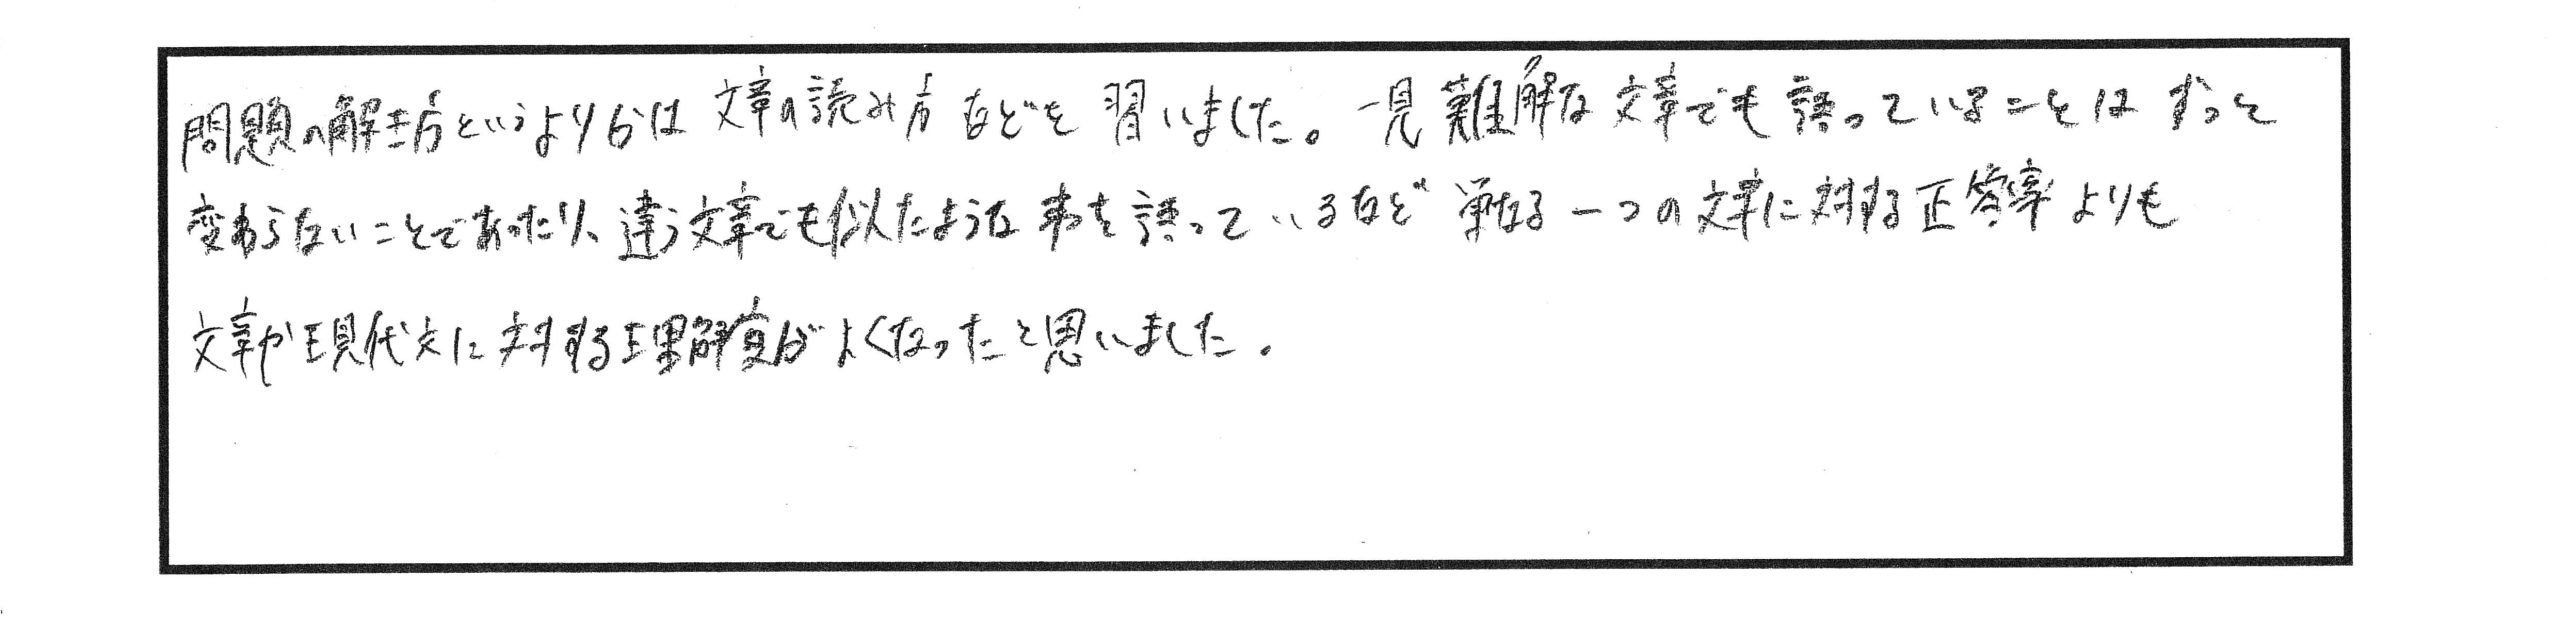 問題の解き方というよりかは 文章の読み方 などを 習いました。一見 難解な文章でも 語っていることは ずっと
変わらないことであったり、違う文章でも似たような 事を 語っているなど 単なる 一つの文章に対する正答率よりも
文章や現代文に対する理解度がよくなったと思いました。